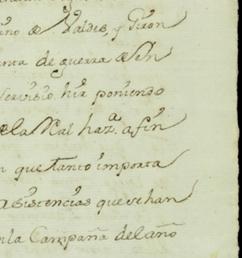 ino de Valdes, y Giron
nta de guerra de en
servisio hir poniendo
de la Rl. hazda. a fin
n que tanto importa
asistencias que se han
en la Campaña del año